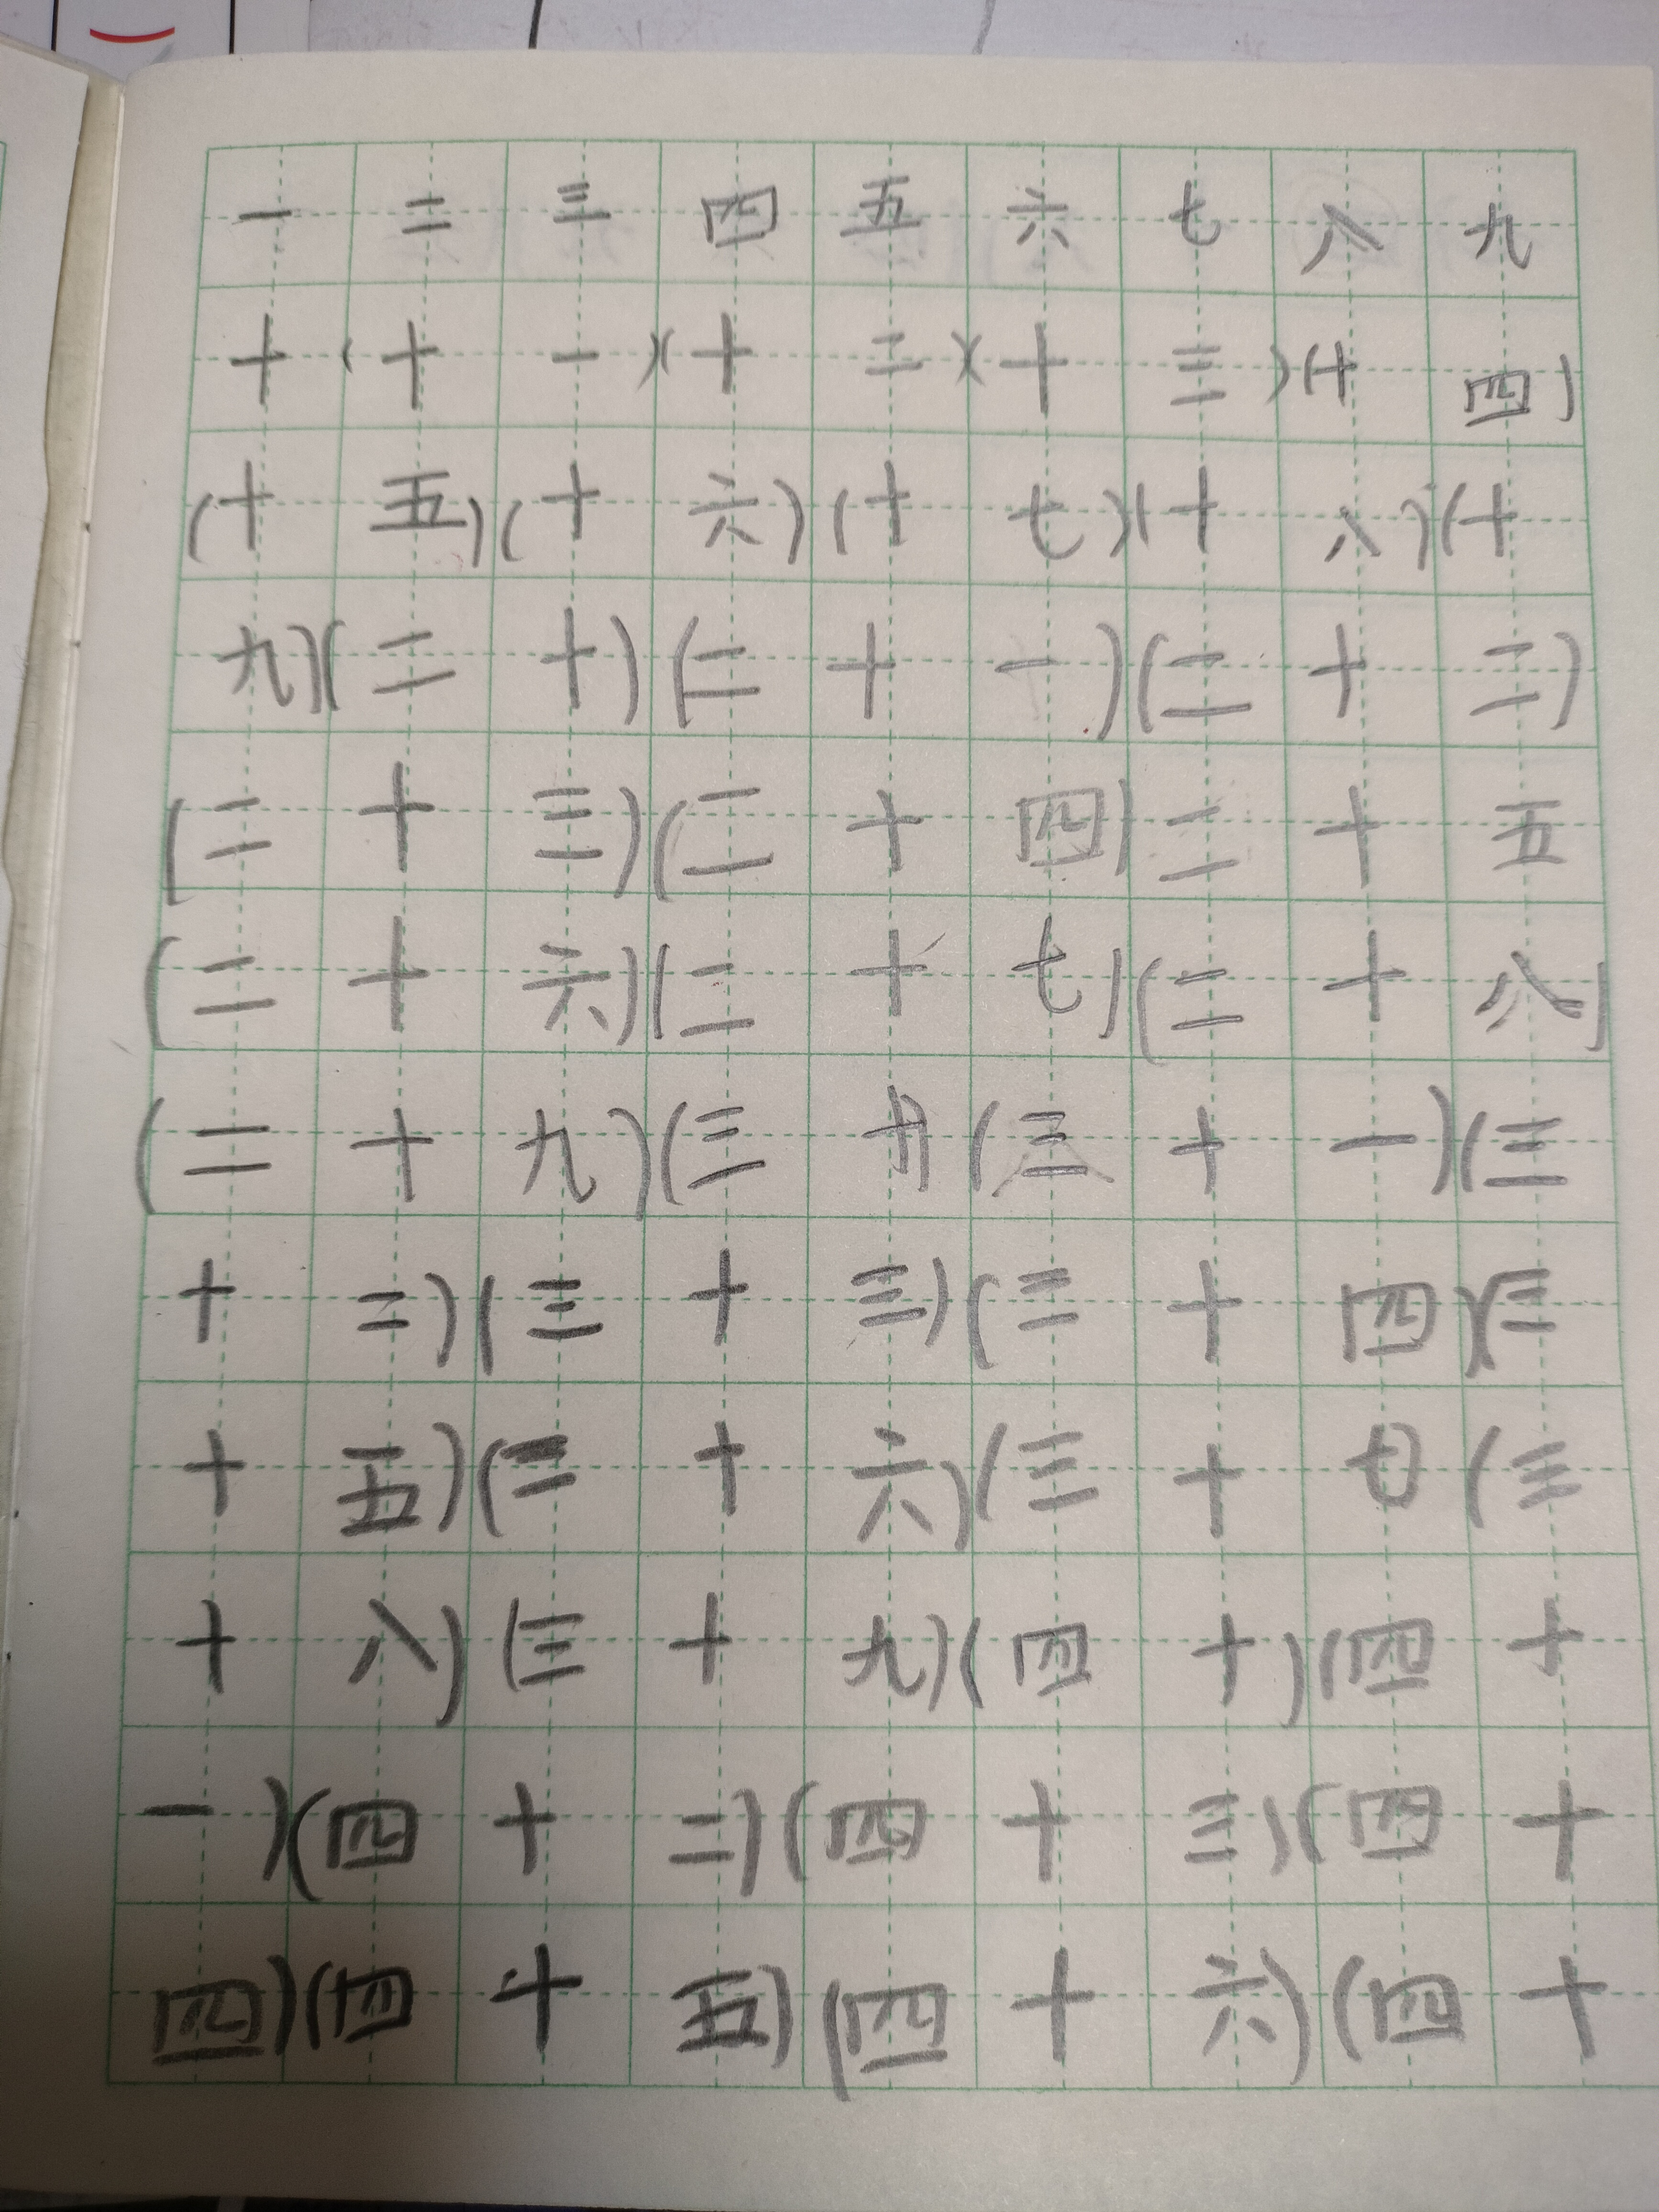 一二三四五六七八九
十(十一)(十二)(十三)(十四)
(十五)(十六)(十七)(十八)(十
九)(二十)(二十一)(二十二)
(二十三)(二十四)二十五
(二十六)(二十七)(二十八)
(二十九)(三十)(三十一)(三
十二)(三十三)(三十四)(三
十五)(三十六)(三十七)(三
十八)(三十九)(四十)(四十
一)(四十二)(四十三)(四十
四)(四十五)(四十六)(四十